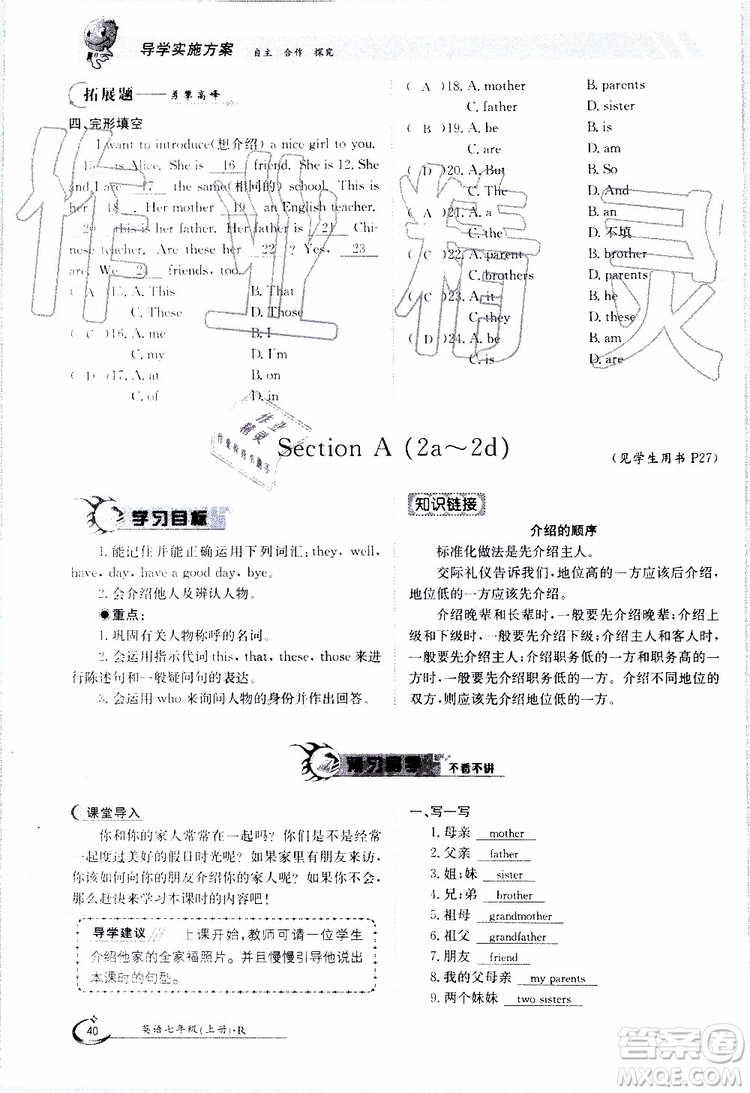 导学实施方案 自主 合作 探究
拓展题——勇攀高峰
四、完形填空
I want to introduce(想介绍) a nice girl to you.
15 is Alice. She is 16 friend. She is 12. She
and I are 17 the same(相同的) school. This is
her 18 . Her mother 19 an English teacher.
20 this is her father. Her father is 21 Chi-
nese teacher. Are these her 22 ? Yes, 23
are. We 24 friends, too.
( A )15. A. This B. That
C. These D. Those
( C )16. A. me B. I
C. my D. I'm
( D )17. A. at B. on
C. of D. in
( A )18. A. mother B. parents
C. father D. sister
( B )19. A. be B. is
C. are D. am
( D )20. A. But B. So
C. The D. And
( A )21. A. a B. an
C. the D. 不填
( D )22. A. parent B. brother
C. brothers D. parents
( C )23. A. it B. he
C. they D. these
( D )24. A. be B. am
C. is D. are
Section A (2a～2d)
(见学生用书 P27)
学习目标
1. 能记住并能正确运用下列词汇: they, well,
have, day, have a good day, bye.
2. 会介绍他人及辨认人物。
●重点:
1. 巩固有关人物称呼的名词。
2. 会运用指示代词 this, that, these, those 来进
行陈述句和一般疑问句的表达。
3. 会运用 who 来询问人物的身份并作出回答。
知识链接
介绍的顺序
标准化做法是先介绍主人。
交际礼仪告诉我们,地位高的一方应该后介绍,
地位低的一方应该先介绍。
介绍晚辈和长辈时,一般要先介绍晚辈;介绍上
级和下级时,一般要先介绍下级;介绍主人和客人时,
一般要先介绍主人;介绍职务低的一方和职务高的一
方时,一般要先介绍职务低的一方。介绍不同地位的
双方,则应该先介绍地位低的一方。
预习导学 不看不讲
课堂导入
你和你的家人常常在一起吗?你们是不是经常
一起度过美好的假日时光呢?如果家里有朋友来访,
你该如何向你的朋友介绍你的家人呢?如果不会,那
么赶快来学习本课时的内容吧!
导学建议 上课开始,教师可请一位学生
介绍他家的全家福照片。并且慢慢引导他说出
本课时的句型。
一、写一写
1. 母亲 mother
2. 父亲 father
3. 姐;妹 sister
4. 兄;弟 brother
5. 祖母 grandmother
6. 祖父 grandfather
7. 朋友 friend
8. 我的父母亲 my parents
9. 两个妹妹 two sisters
40 英语七年级(上册)·R
作业精灵
作业
精灵
答案圈
MXQE.COM